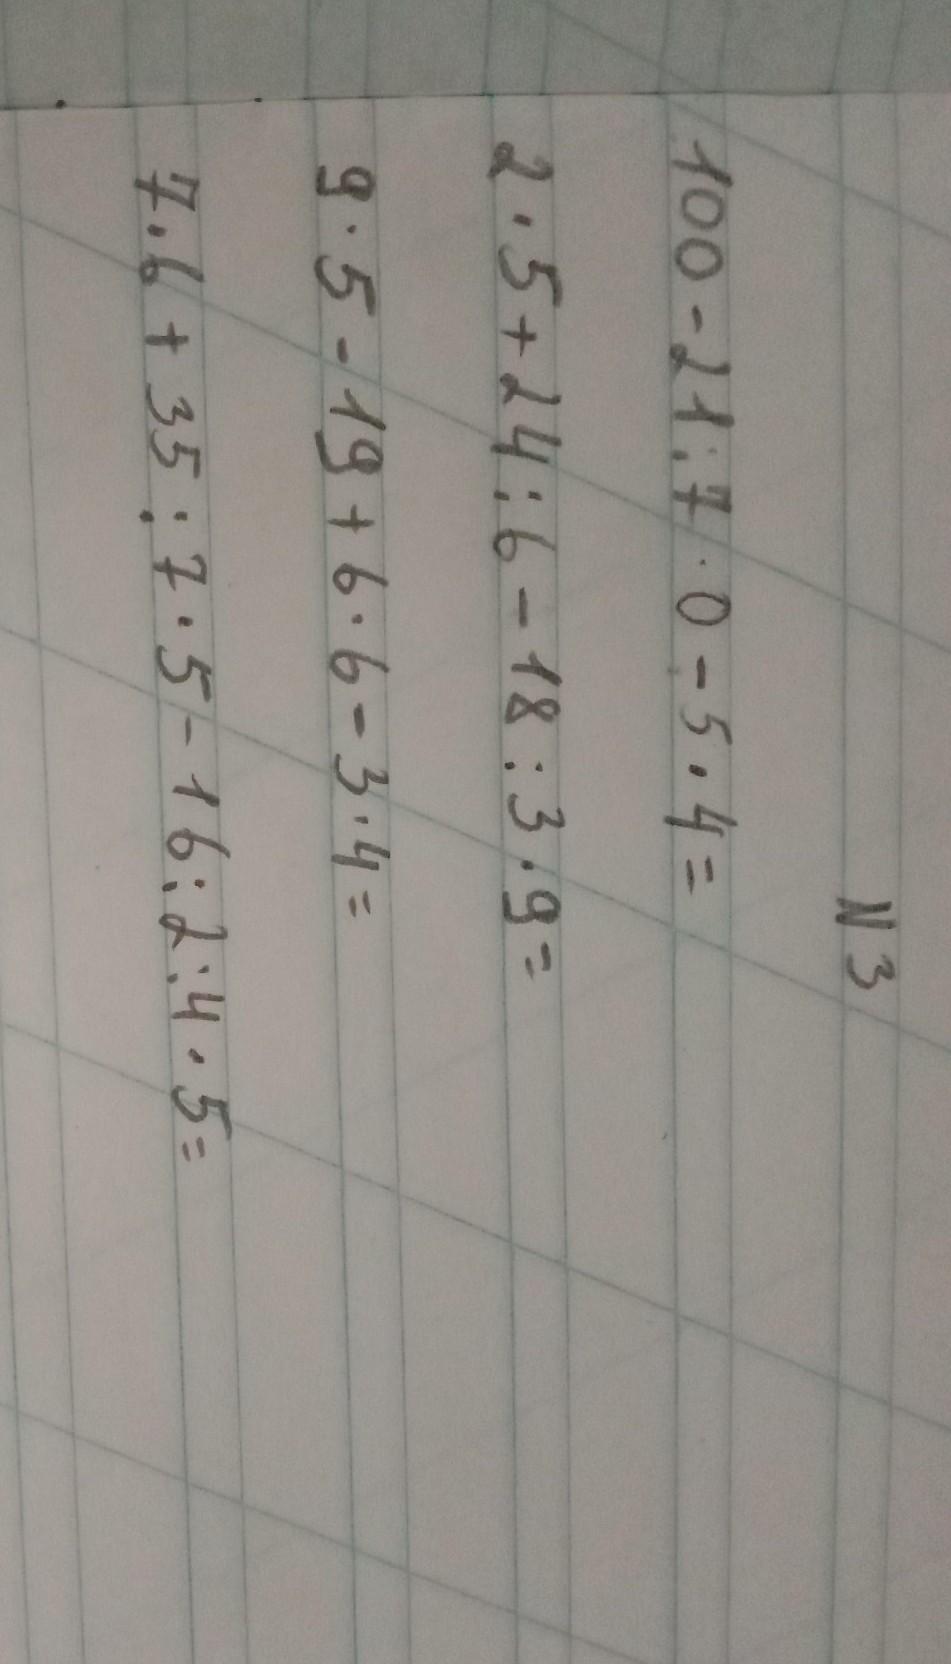 N 3
100 - 21 : 7 · 0 - 5 · 4 =
2 · 5 + 24 : 6 - 18 : 3 · 9 =
9 · 5 - 19 + 6 · 6 - 3 · 4 =
7 · 6 + 35 : 7 · 5 - 16 : 2 : 4 · 5 =